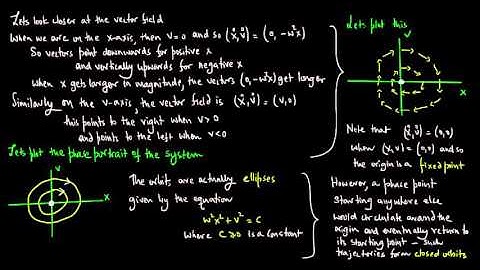 Lets look closer at the vector field
When we are on the x-axis, then v=0 and so (ẋ, v̇) = (0, -ω²x)
So vectors point downwards for positive x
and vertically upwards for negative x
when x gets larger in magnitude, the vectors (0, -ω²x) get longer
Similarly on the v-axis, the vector field is (ẋ, v̇) = (v, 0)
this points to the right when v > 0
and points to the left when v < 0
Lets plot the phase portrait of the system
v
x
The orbits are actually ellipses
given by the equation
ω²x² + v² = C
where C ≥ 0 is a constant
Lets plot this
v
x
Note that (ẋ, v̇) = (0, 0)
when (x, v) = (0, 0) and so
the origin is a fixed point
However, a phase point
starting anywhere else
would circulate around the
origin and eventually return to
its starting point – such
trajectories form closed orbits